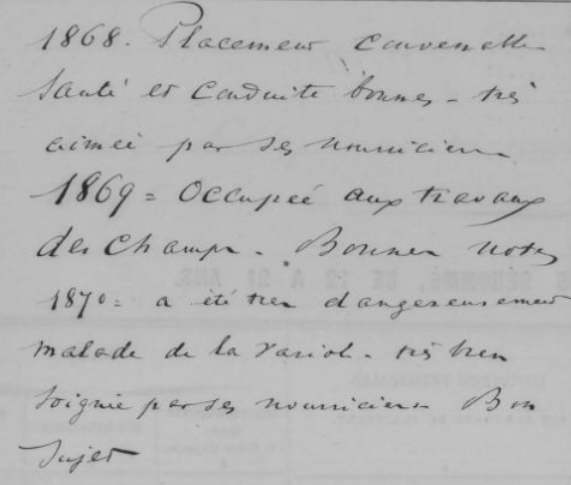 1868. Placement convenable
Santé et Conduite bonnes - très
aimée par ses nourriciers
1869 = Occupée aux travaux
des Champs. Bonnes notes
1870 = a été très dangereusement
malade de la variole. très bien
soignée par ses nourriciers Bon
Sujet